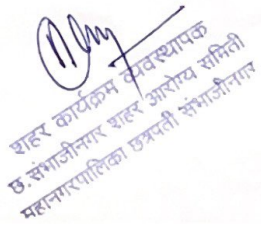 शहर कार्यक्रम व्यवस्थापक
छ. संभाजीनगर शहर आरोग्य समिती
महानगरपालिका छत्रपती संभाजीनगर